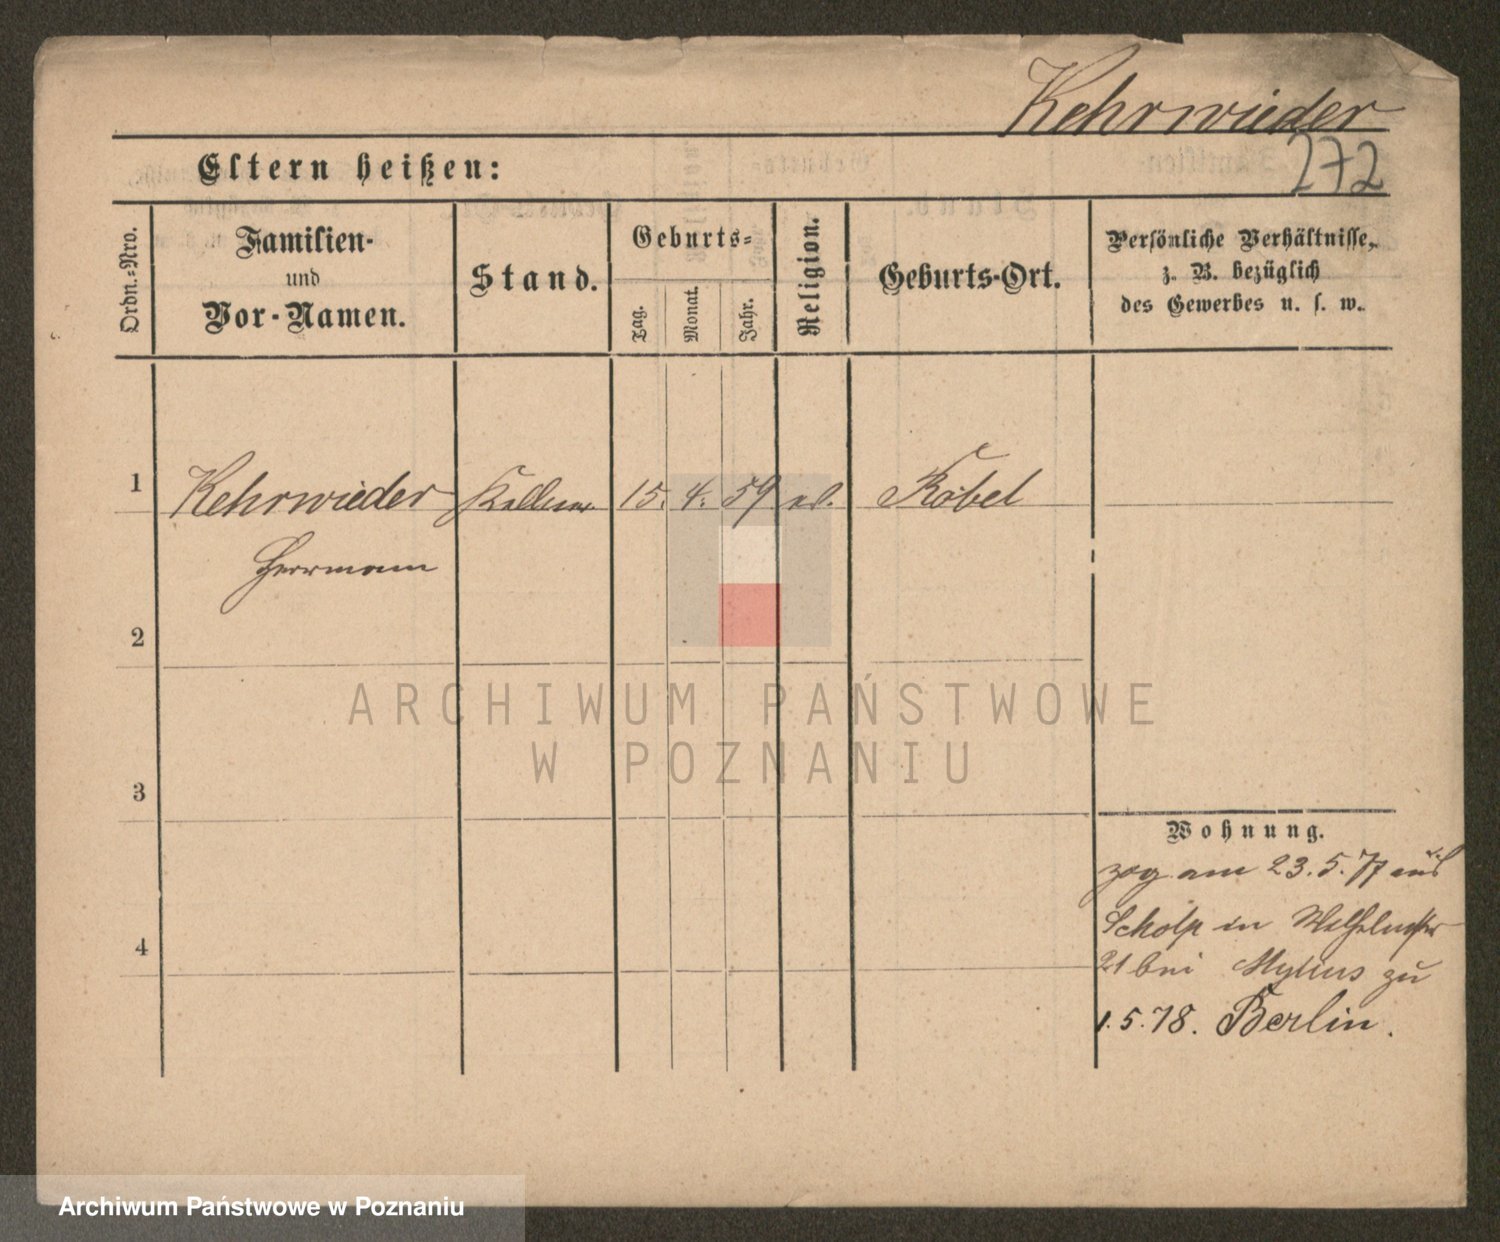 Kehrwieder
Eltern heißen:
272
Ordn.-Nro.
Familien-
und
Vor-Namen.
Stand.
Geburts-
Tag.
Monat.
Jahr.
Religion.
Geburts-Ort.
Persönliche Verhältnisse,
z. B. bezüglich
des Gewerbes u. s. w.
1 Kehrwieder Kellner 15. 4. 59 Kobel
Herrmann
2
ARCHIWUM PAŃSTWOWE
W POZNANIU
3
Wohnung.
zog am 23.5.77 aus
in Wilhelmstr
4
21 bei Mylius zu
1.5.78. Berlin.
Archiwum Państwowe w Poznaniu